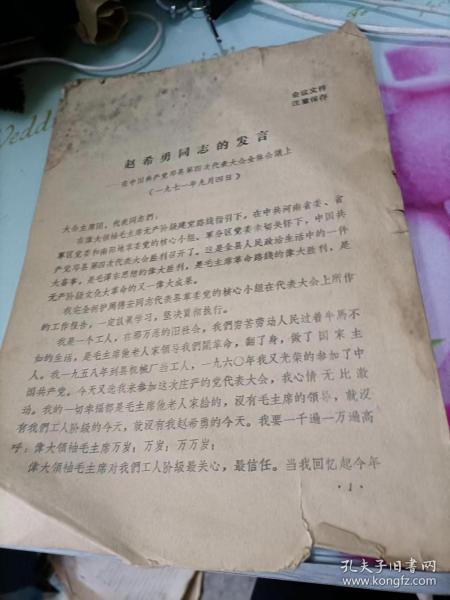 会议文件
注意保存
赵希勇同志的发言
——在中国共产党邓县第四次代表大会全体会议上
（一九七一年九月四日）
大会主席团、代表同志們：
在偉大領袖毛主席无产阶級建党路綫指引下，在中共河南省委、省
軍区党委和南阳地革委党的核心小組、軍分区党委亲切关怀下，中国共
产党邓县第四次代表大会胜利召开了。这是全县人民政治生活中的一件
大喜事，是毛泽东思想的偉大胜利，是毛主席革命路綫的偉大胜利，是
无产阶級文化大革命的又一偉大成果。
我完全拥护周傅安同志代表县革委党的核心小組在代表大会上所作
的工作报告，一定认真学习，坚决貫彻执行。
我是一个工人，在那万恶的旧社会，我們穷苦劳动人民过着牛馬不
如的生活，是毛主席他老人家領导我們閙革命，翻了身，做了国家主
人。我一九五八年到县机械厂当工人，一九六〇年我又光荣的参加了中
国共产党。今天又选我来参加这次庄严的党代表大会，我心情无比激
动。我的一切幸福都是毛主席他老人家給的，沒有毛主席的領导，就沒
有我們工人阶級的今天，就沒有我赵希勇的今天。我要一千遍一万遍高
呼：偉大領袖毛主席万岁！万岁！万万岁！
偉大領袖毛主席对我們工人阶級最关心，最信任。当我回忆起今年
·1·
孔夫子旧书网
www.kongfz.com